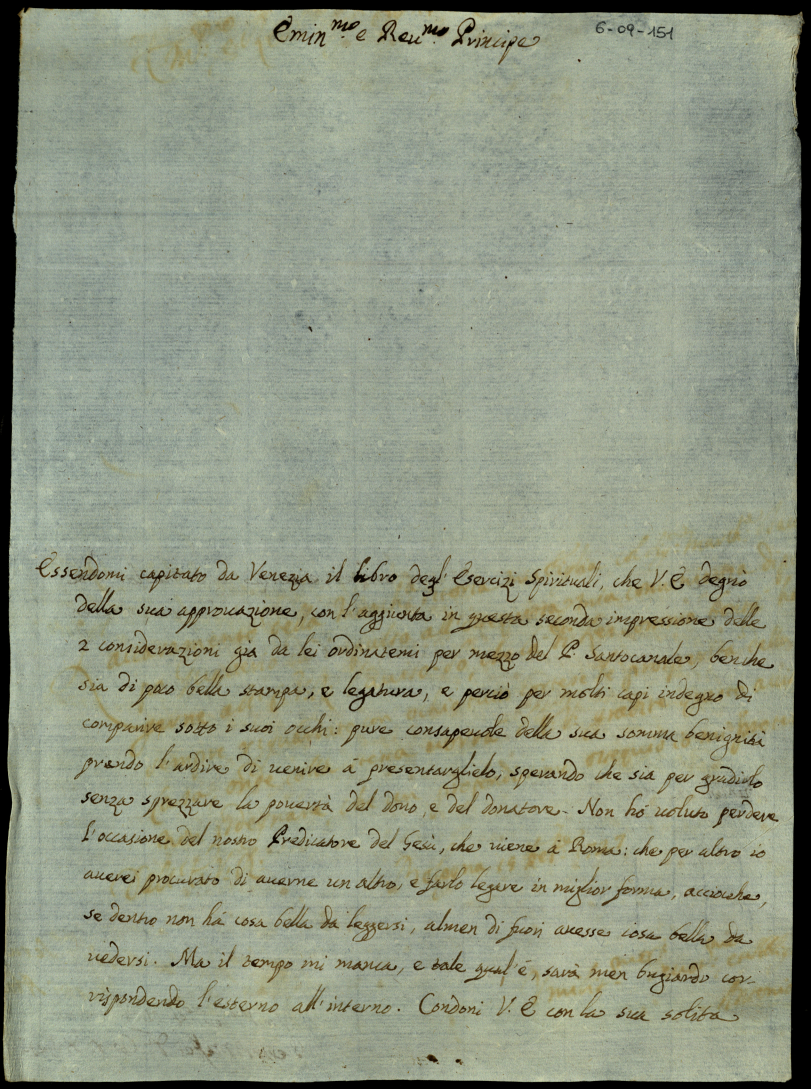 Emin.mo e Reu.mo Principe
6-09-151
Essendomi capitato da Venezia il libro degl' Esercizj Spirituali, che V. E degnò
della sua approuazione, con l'aggiunta in questa seconda impressione delle
2 considerazioni già da lei ordinatemi per mezzo del P. Santocanale, benche
sia di poco bella stampa, e legatura, e perciò per molti capi indegno di
comparire sotto i suoi occhi: pure consapeuole della sua somma benignità
prendo l'ardire di uenire à presentarglielo, sperando che sia per gradirlo
senza sprezzare la pouertà del dono, e del donatore. Non hò uoluto perdere
l'occasione del nostro Predicatore del Gesù, che viene à Roma: che per altro io
auerei procurato di auerne un altro, e farlo legare in miglior forma, accioche,
se dentro non hà cosa bella da leggersi, almen di fuori auesse cosa bella da
uedersi. Ma il tempo mi manca, e tale qual'è, sarà men bugiardo cor-
rispondendo l'esterno all'interno. Condoni V. E con la sua solita